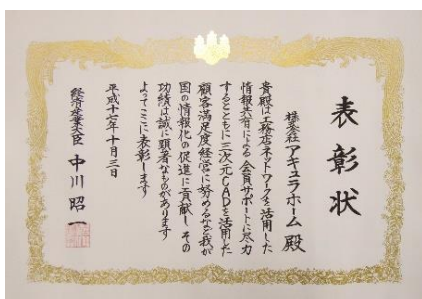 表彰状
株式会社 アキュラホーム 殿
貴殿は工務店ネットワークを活用した
情報共有による会員サポートに尽力
するとともに三次元CADを活用した
顧客満足度経営に努めるなど我が
国の情報化の促進に貢献し その
功績は誠に顕著なものがあります
よってここに表彰します
平成十七年十月三日
経済産業大臣 中川昭一